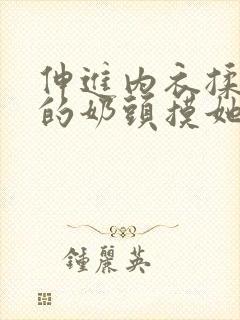 伸進內衣揉
的奶頭摸她
鍾麗英